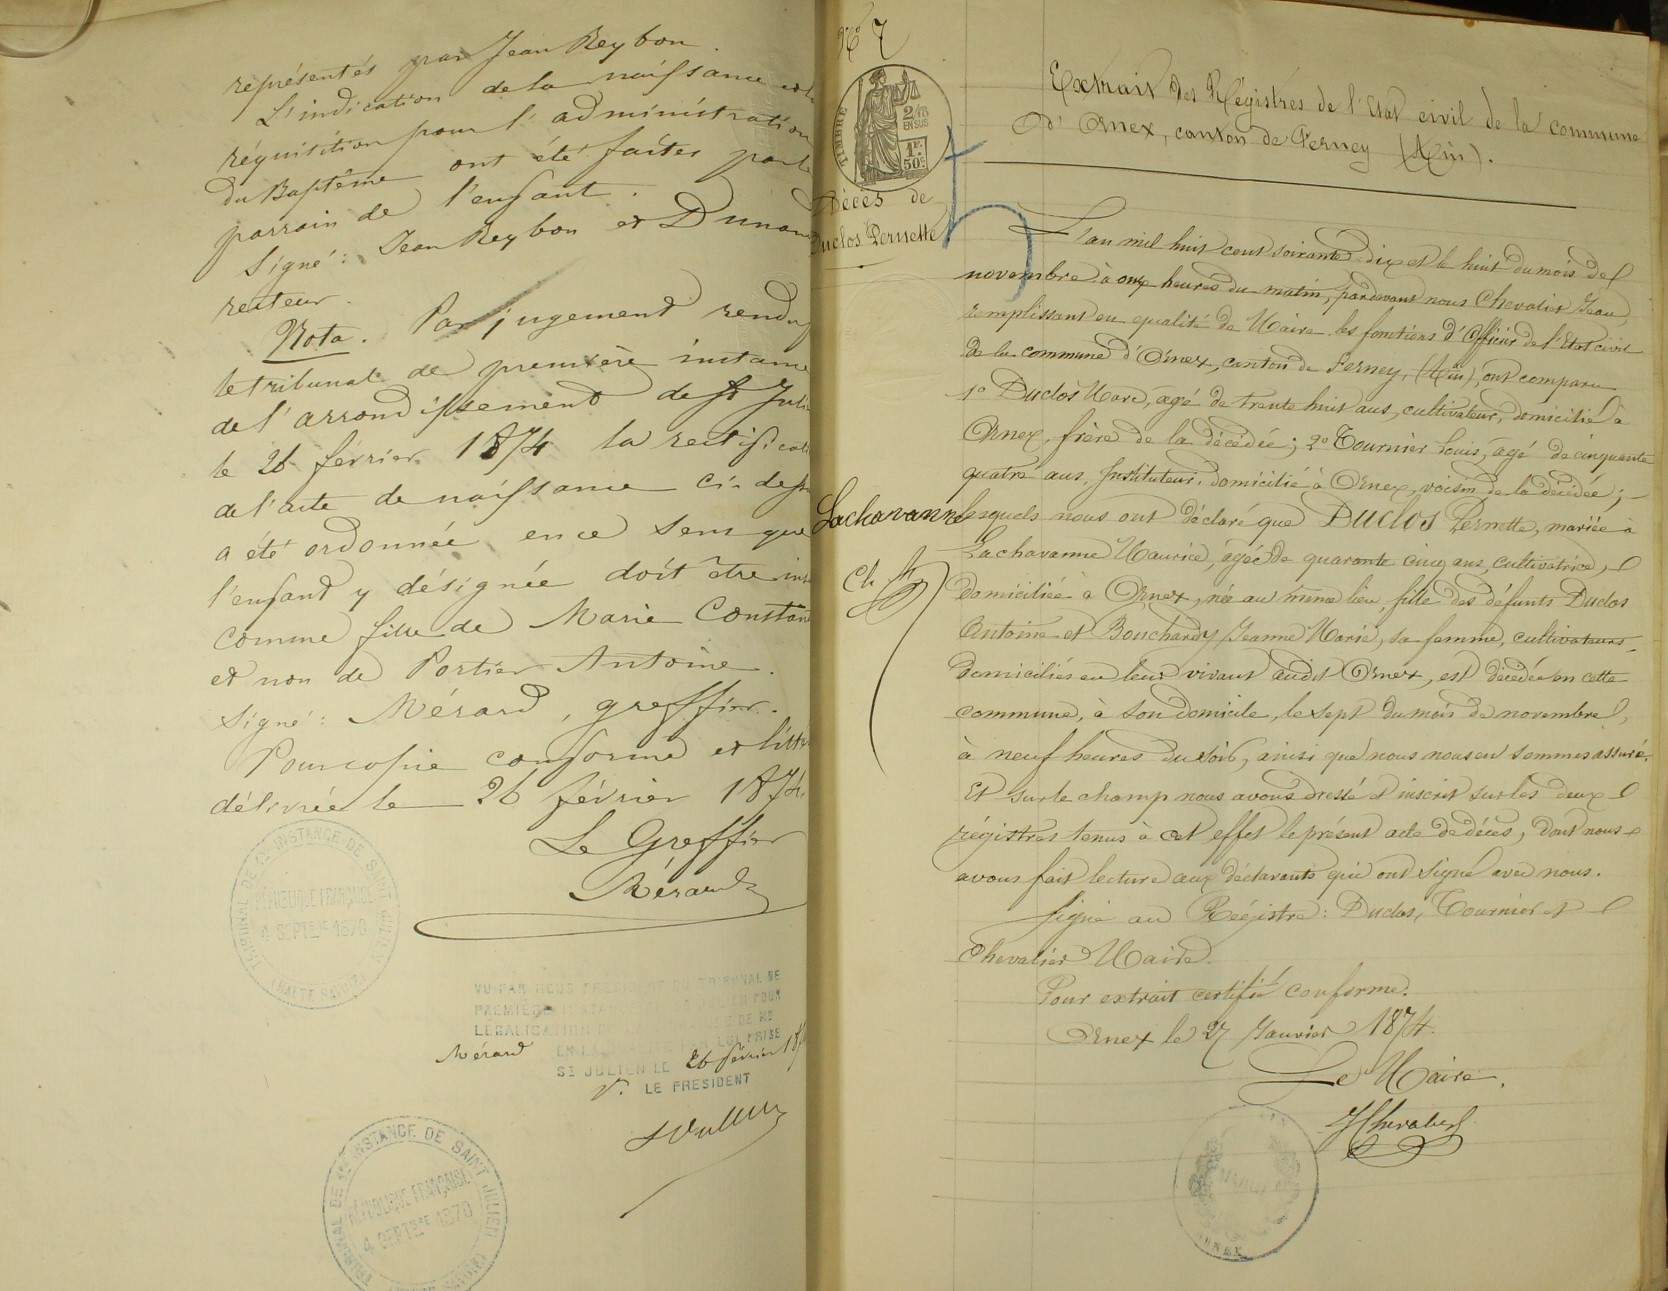 représentés par Jean Reybon.
L'indication de la naissance et la
réquisition pour l'administration
du Baptême ont été faites par le
parrain de l'enfant.
Signé: Jean Reybon et Dunand
recteur.
Nota. Par jugement rendu
le tribunal de première instance
de l'arrondissement de St Juli
le 26 février 1874 la rectificati
de l'acte de naissance ci-dess
a été ordonnée en ce sens que
l'enfant y désignée doit être ins
comme fille de Marie Constan
et non de Portier Antoine.
Signé: Mérard, greffier.
Pour copie conforme et litté
délivrée le 26 février 1874.
Le Greffier
Mérard
TRIBUNAL DE 1RE INSTANCE DE SAINT JULIEN
RÉPUBLIQUE FRANÇAISE
4 SEPTBRE 1870
(HAUTE SAVOIE)
VU PAR NOUS PRÉSIDENT DU TRIBUNAL DE
PREMIÈRE POUR
LÉGALISATION DE MR
Mérard
ST JULIEN LE 26 février 18
V. LE PRÉSIDENT
TRIBUNAL DE 1RE INSTANCE DE SAINT JULIEN
RÉPUBLIQUE FRANÇAISE
4 SEPTBRE 1870
No 7
TIMBRE
2/10
EN SUS
1F.
50C
Décès de
Duclos Pernette
Lachavanne
Extrait des Régistres de l'Etat civil de la commune
d'Ornex, canton de Ferney (Ain).
L'an mil huit cent soixante-dix et le huit du mois de
novembre à onze heures du matin, pardevant nous Chevalier Jean,
remplissant en qualité de Maire les fonctions d'Officier de l'Etat civil
de la commune d'Ornex, canton de Ferney, (Ain), ont comparu
1o Duclos Marc, âgé de trente huit ans, cultivateur, domicilié à
Ornex, frère de la décédée; 2o Tournier Louis, âgé de cinquante
quatre ans, Instituteur, domicilié à Ornex, voisin de la décédée;
lesquels nous ont déclaré que Duclos Pernette, mariée à
Lachavanne Maurice, âgée de quarante cinq ans, cultivatrice,
domiciliée à Ornex, née au même lieu, fille des défunts Duclos
Antoine et Bouchardy Jeanne Marie, sa femme, cultivateurs
domiciliés en leur vivant audit Ornex, est décédée en cette
commune, à son domicile, le sept du mois de novembre,
à neuf heures du soir, ainsi que nous nous en sommes assuré.
Et sur le champ nous avons dressé et inscrit sur les deux
régistres tenus à cet effet le présent acte de décès, dont nous
avons fait lecture aux déclarants qui ont signé avec nous.
Signé au Régistre: Duclos, Tournier et
Chevalier Maire.
Pour extrait certifié conforme.
Ornex le 27 Janvier 1874.
Le Maire,
J Chevalier
ORNEX